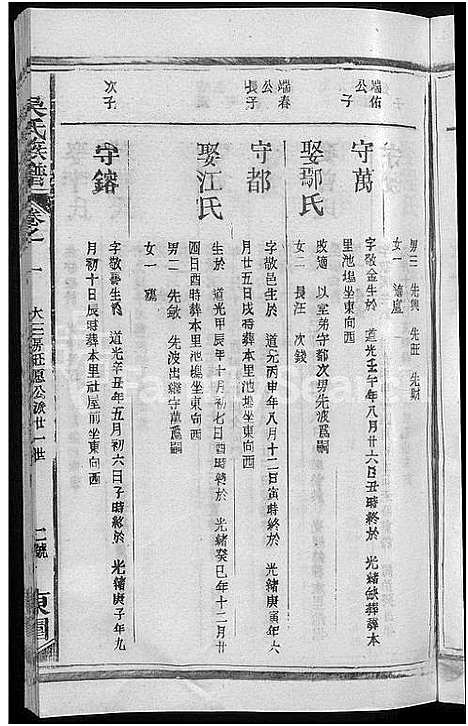 男三 先興 先旺 先勛
女一 適盧
端佑公子
守萬
字敬金生於 道光壬午年八月廿六日丑時終於 光緒 葬本
里池塢坐東向西
娶鄢氏
改適 以堂弟守都次男先波爲嗣
女二 長汪 次錢
端春公長子
守都
字敬邑生於 道光丙申年八月十二日寅時終於 光緒庚寅年六
月廿五日戌時葬本里池塢坐東向西
娶江氏
生於 道光甲辰年十月初七日酉時終於 光緒癸巳年十二月廿
四日酉時葬本里池塢坐東向西
男二 先敏 先波出繼守萬爲嗣
女一 適
次子
守鎔
字敬 生於 道光辛丑年五月初六日子時終於 光緒庚子年九
月初十日辰時葬本里社屋前坐東向西
吳氏族譜 卷之一
大三房旺愿公派廿一世
二號
東園